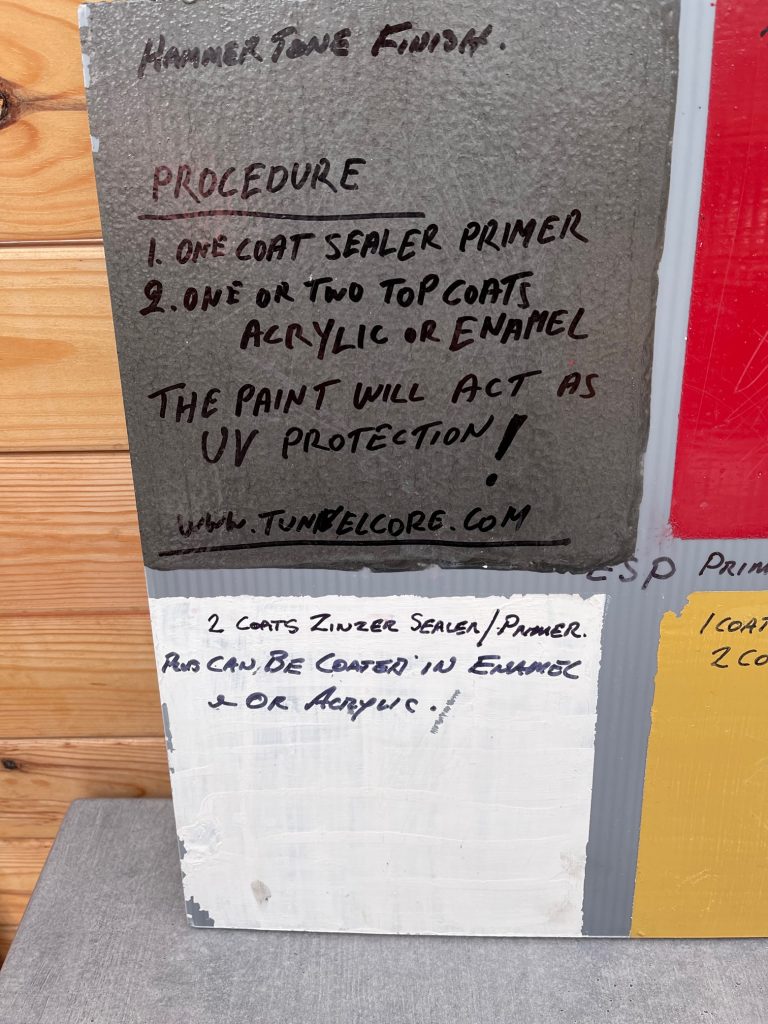 HAMMER TONE FINISH.
PROCEDURE
1. ONE COAT SEALER PRIMER
2. ONE OR TWO TOP COATS
ACRYLIC OR ENAMEL
THE PAINT WILL ACT AS
UV PROTECTION!
WWW.TUNNELCORE.COM
ESP PRIM
2 COATS ZINZER SEALER/PRIMER.
CAN BE COATED IN ENAMEL
& OR ACRYLIC.
1 COAT
2 CO